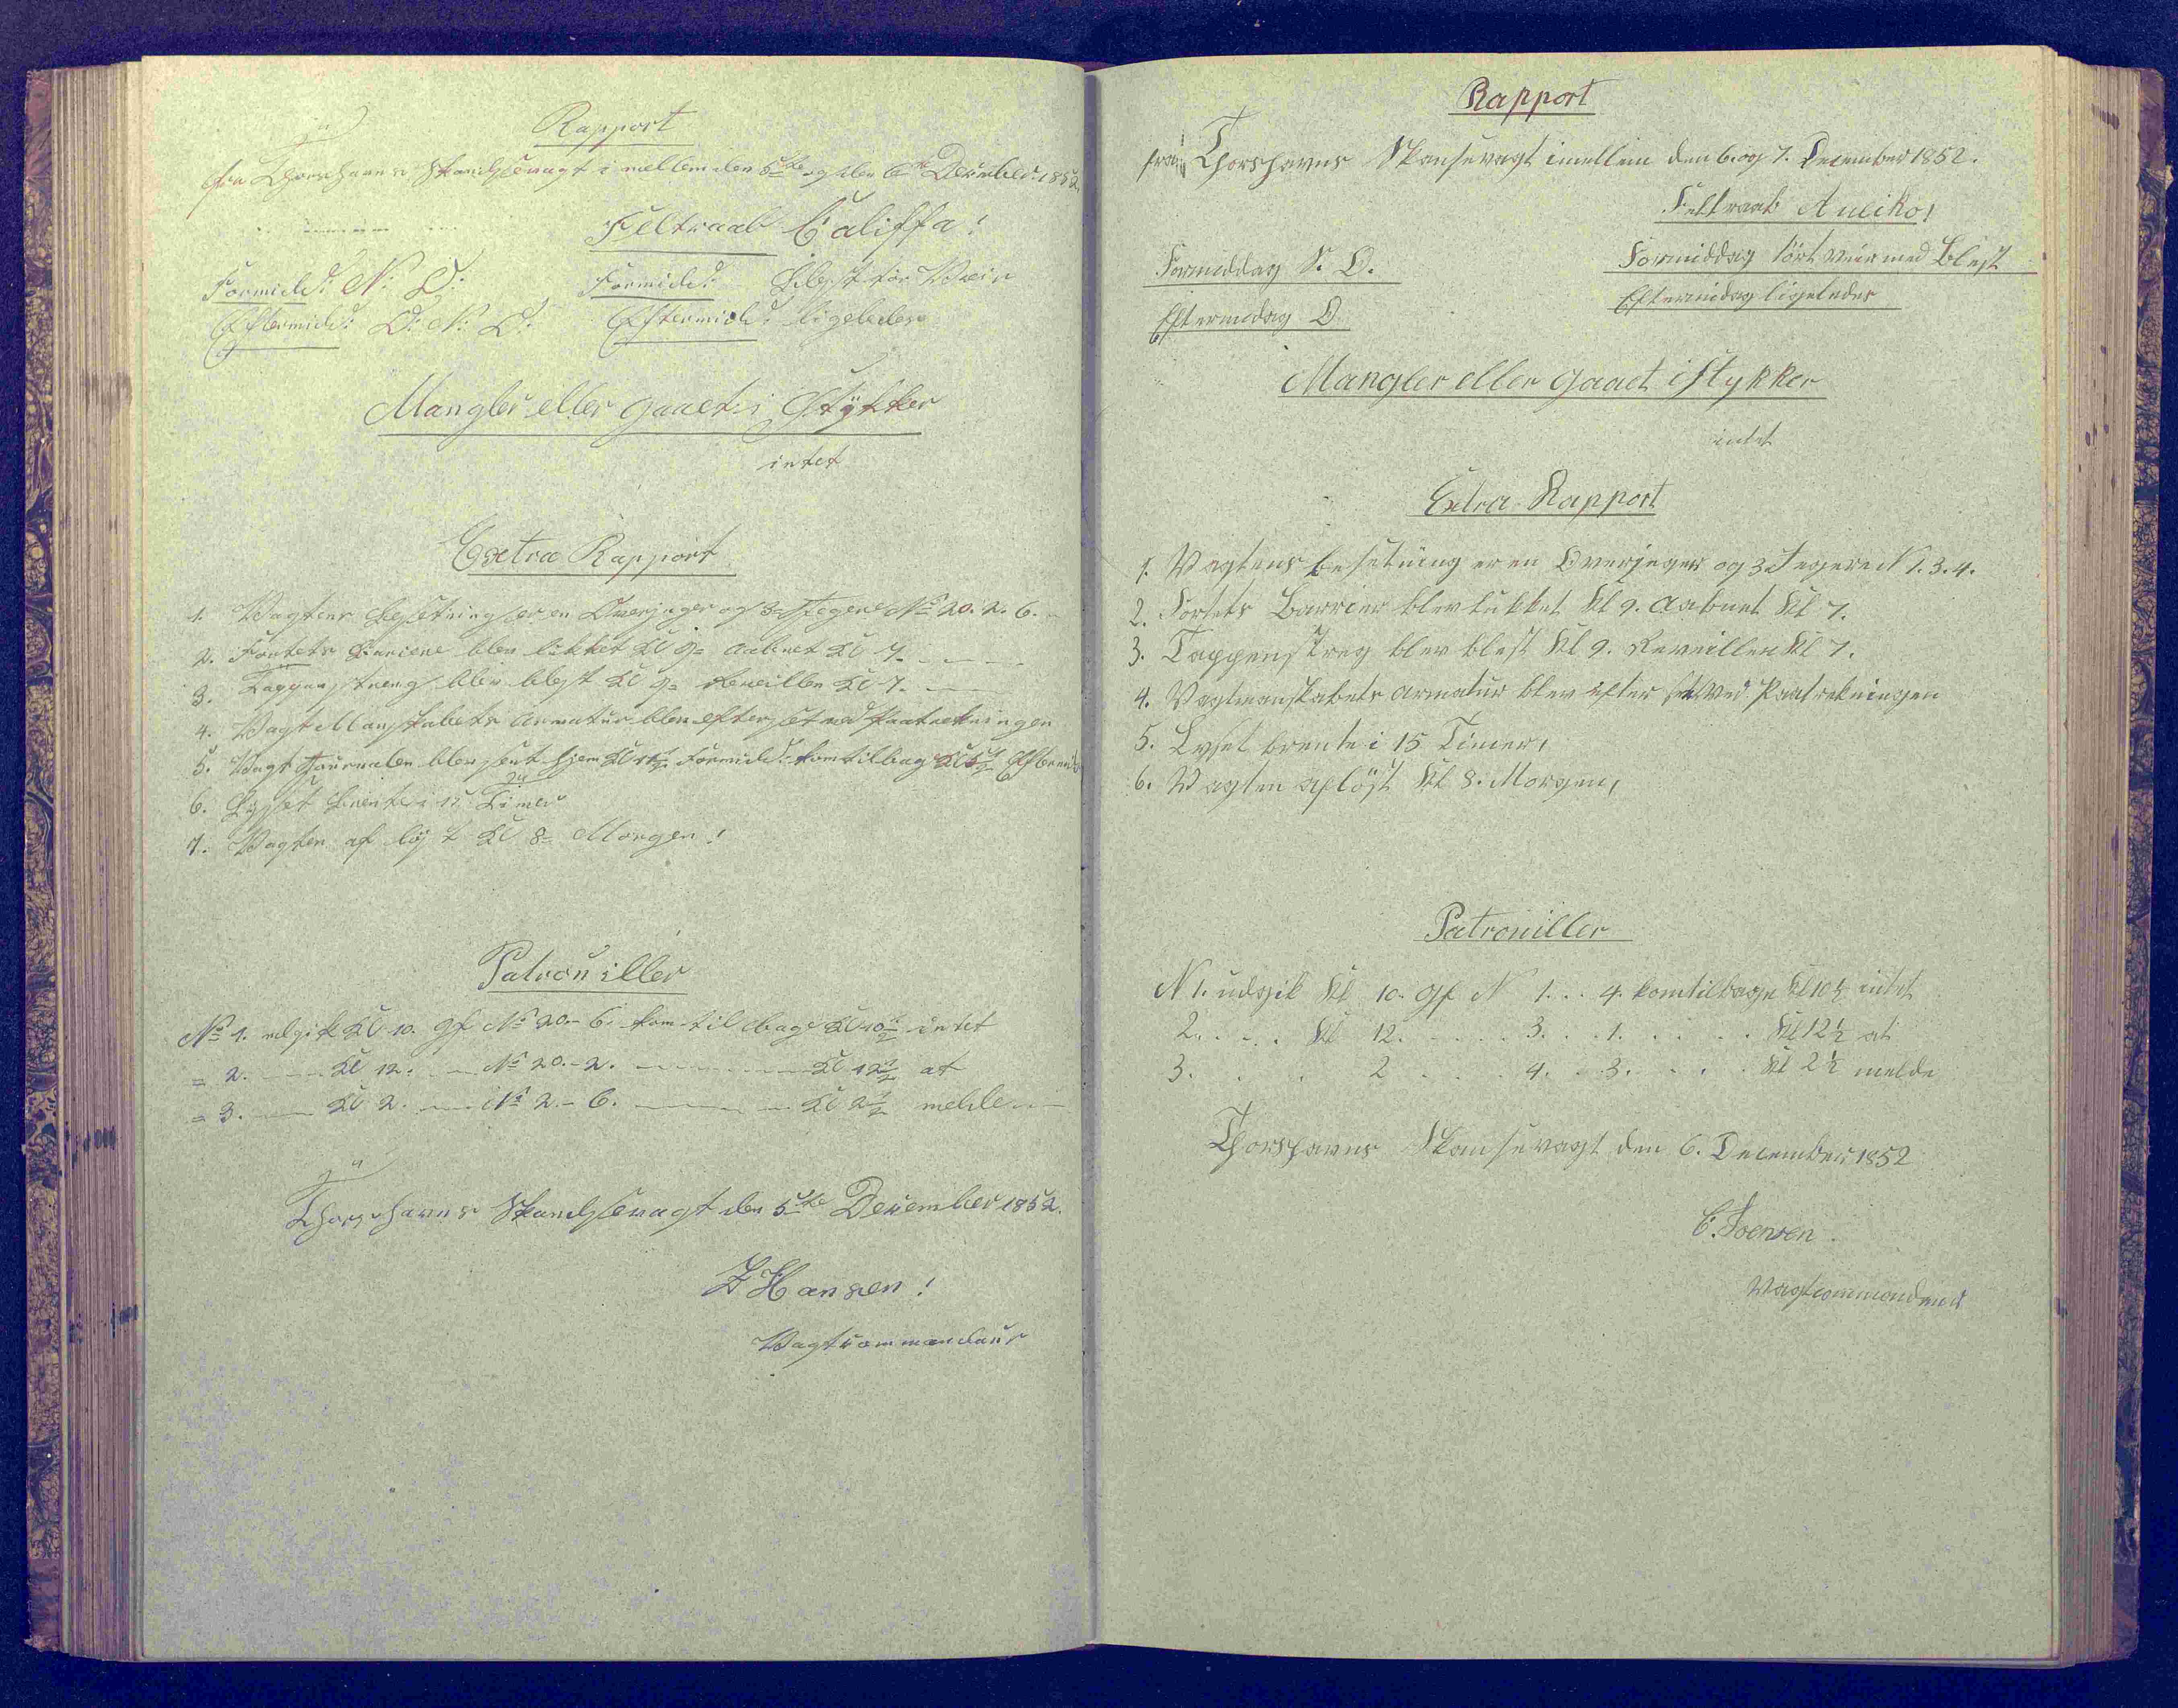 Rapport
fra Thorshavns Skandsevagt i mellem den 5te og den 6te December 1852
Feltraab Califfa!
Formidd: N: O: Formidd: Blest tör Veir
Eftermidd: O: N: O: Eftermidd: ligeledes
Mangler eller gaaet i Stykker
intet
Exstra Rapport
1. Vagtens Besetning er en Overjæger og 3 Jegere No 20. 2. 6.
2. Fortets Bariere blev lukket Kl 9 aabnet Kl 7.
3. Tappenstreng blev blest Kl 9 Reveillen Kl 7.
4. Vagt Manskabets Armatur blev efterset ved Paatrekningen
5. Vagt Journalen blev sent hjem Kl Formidd: kom tilbag Kl Efterm
6. Lyset brente i 15 Timer
7. Vagten aflöst Kl 8 Morgen!
Patrouiller
No 1. udgik Kl 10. Gf No 20.- 6. kom tilbage Kl 10½ intet
= 2. Kl 12. No 20.- 2. Kl 12½ at
= 3. Kl 2. No 2.- 6. Kl 2½ melde
Thorshavns Skandsevagt den 5te December 1852.
Z Hansen!
Vagtcommandeur
Rapport
fra Thorshavns Skansevagt imellem den 6. og 7. December 1852.
Feltraab Auciko!
Formiddag S. O. Formiddag tört veir med Blest
Eftermidag O Eftermidag ligeledes
Mangler eller gaaet i stykker
intet
Extra Rapport
1. Vagtens besetning er en Overjeger og 3 Jegere N 1. 3. 4.
2. Fortets Barrier blev lukket Kl 9. aabnet Kl 7.
3. Tappenstreg blev blest Kl 9. Reveillen Kl 7.
4. Vagtmanskabets armatur blev efter set ved Paatrekningen
5. Lyset brente i 15 Timer,
6. Vagten aflöst Kl 8. Morgen,
Patrouiller
N 1. udgik Kl 10. Gf N 1. . . 4. kom tilbage Kl 10½ intet
2. . . . Kl 12. . . . . 3. . . 1. . . . . . Kl 12½ at
3. . . . 2 . . . . 4. . . 3. . . . . Kl 2½ melde
Thorshavns Skansevagt den 6. December 1852
C. Joensen.
Vagtcommandeur